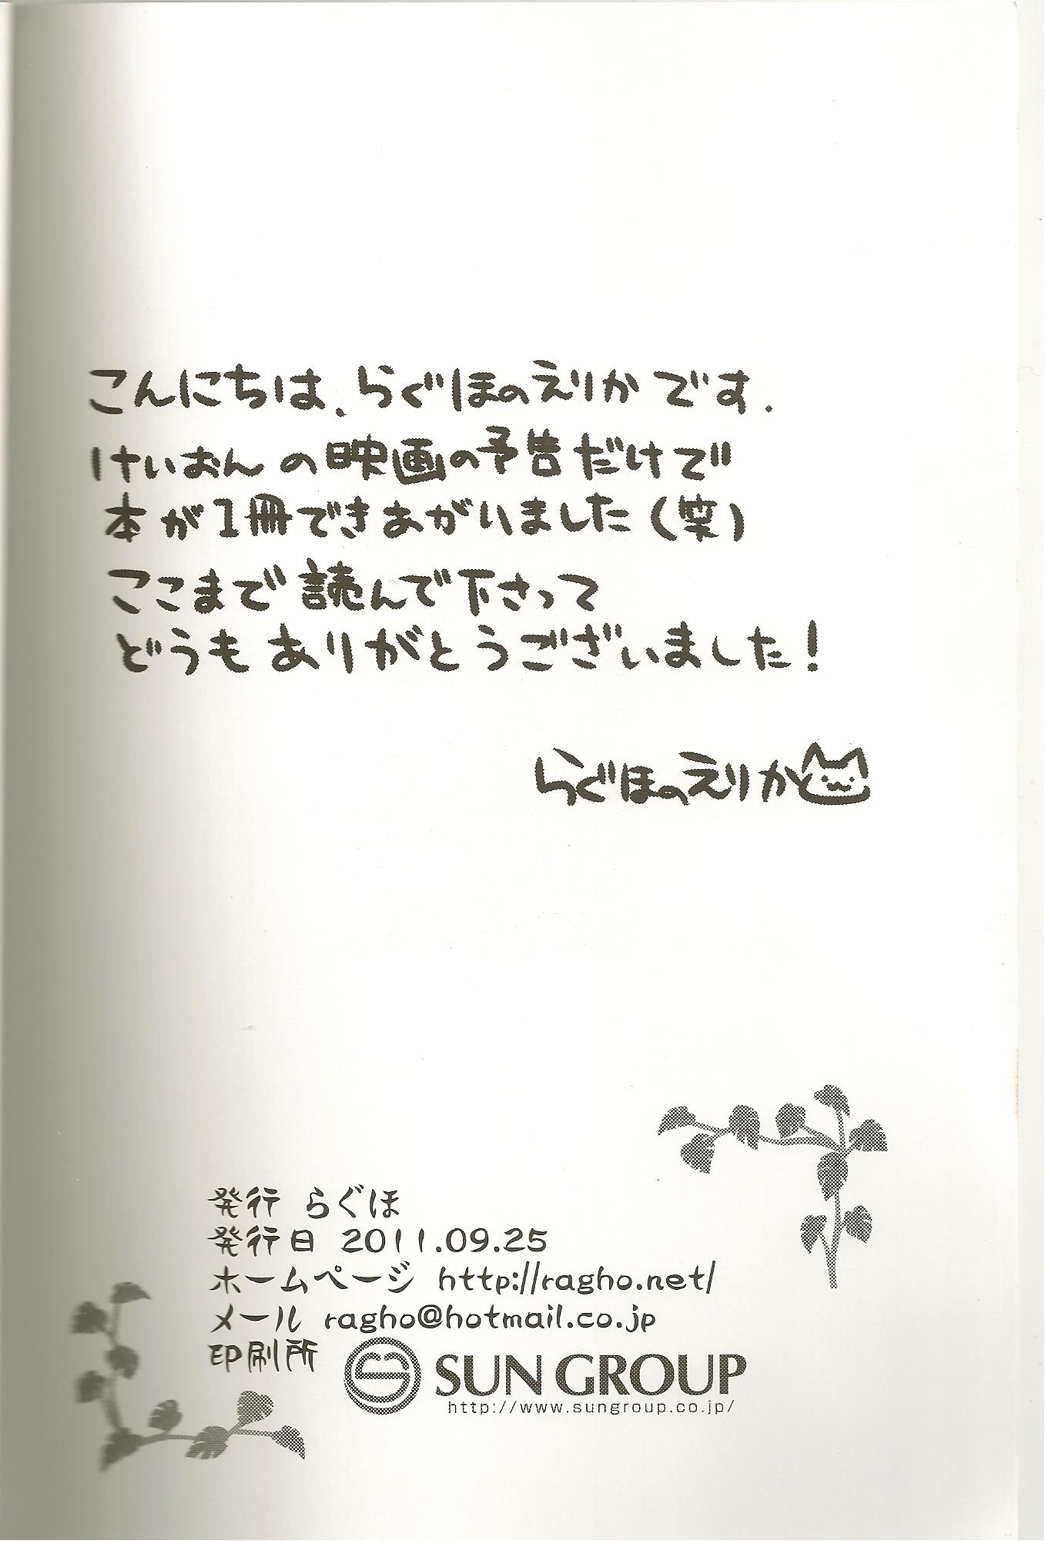 こんにちは、らぐほのえりかです.
けいおんの映画の予告だけで
本が1冊できあがいました(笑)
ここまで読んで下さって
どうもありがとうございました!
らぐほのえりか
発行 らぐほ
発行日 2011.09.25
ホームページ http://ragho.net/
メール ragho@hotmail.co.jp
印刷所 SUN GROUP
http://www.sungroup.co.jp/